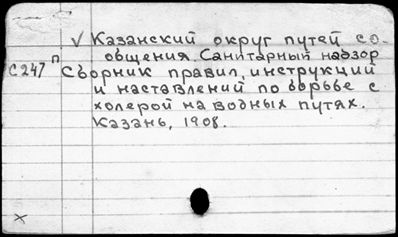 √ Казанский округ путей со-
общения. Санитарный надзор
С247 п Сборник правил, инструкций
и наставлений по борьбе с
холерой на водных путях.
Казань, 1908.
×